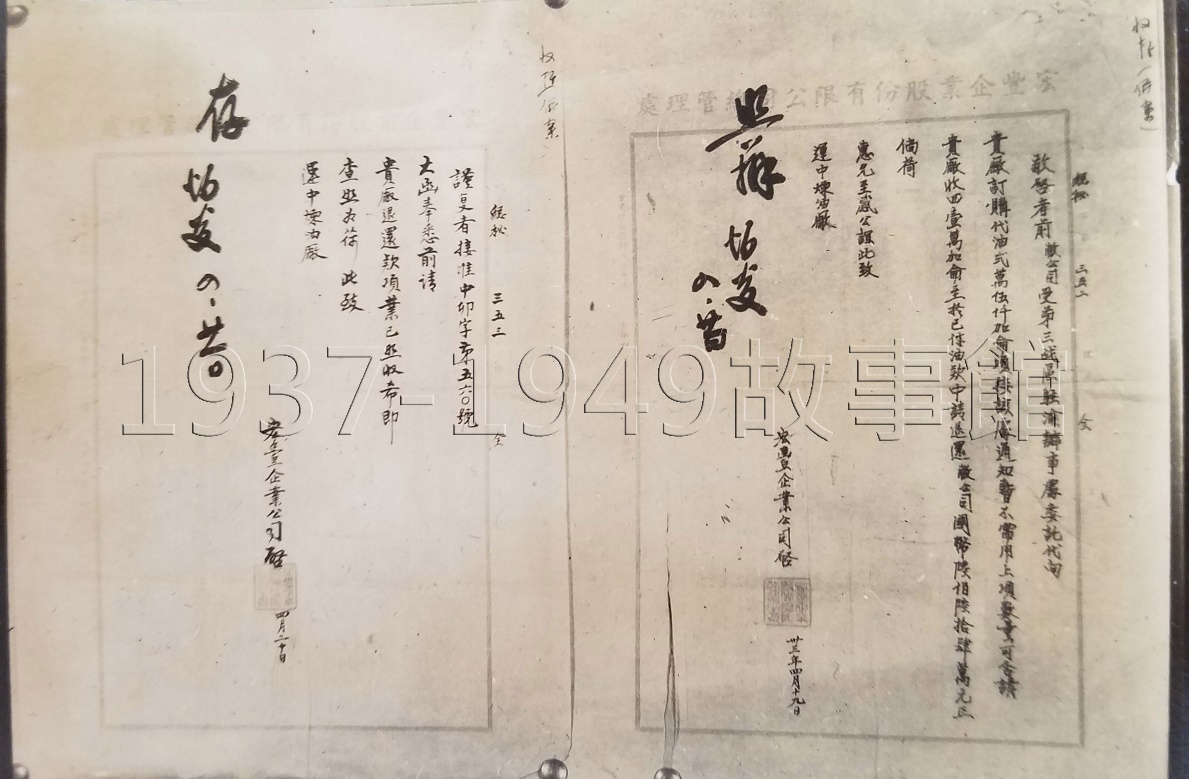 宏豐企業股份有限公司總管理處
總秘 三五二 仝
敬啓者前敝公司受第三战區駐渝辦事處委託代向
貴廠訂購代油弍萬伍仟加侖項林誤處通知暫不需用上項數量可否請
貴廠收回壹萬加侖至於已付油款中請退還敝公司國幣陸佰陸拾肆萬元正
倘荷
惠允至感公誼此致
運中煉油廠
照辦
四、廿
宏豐企業公司啓
卅三年四月十九日
總秘 三五三 仝
謹复者接准中卯字第五六〇號
大函奉悉前請
貴廠退還款項業已照收希即
查照为荷 此致
運中煉油廠
存
四、廿
宏豐企業公司啓
四月二十日
1937-1949故事館